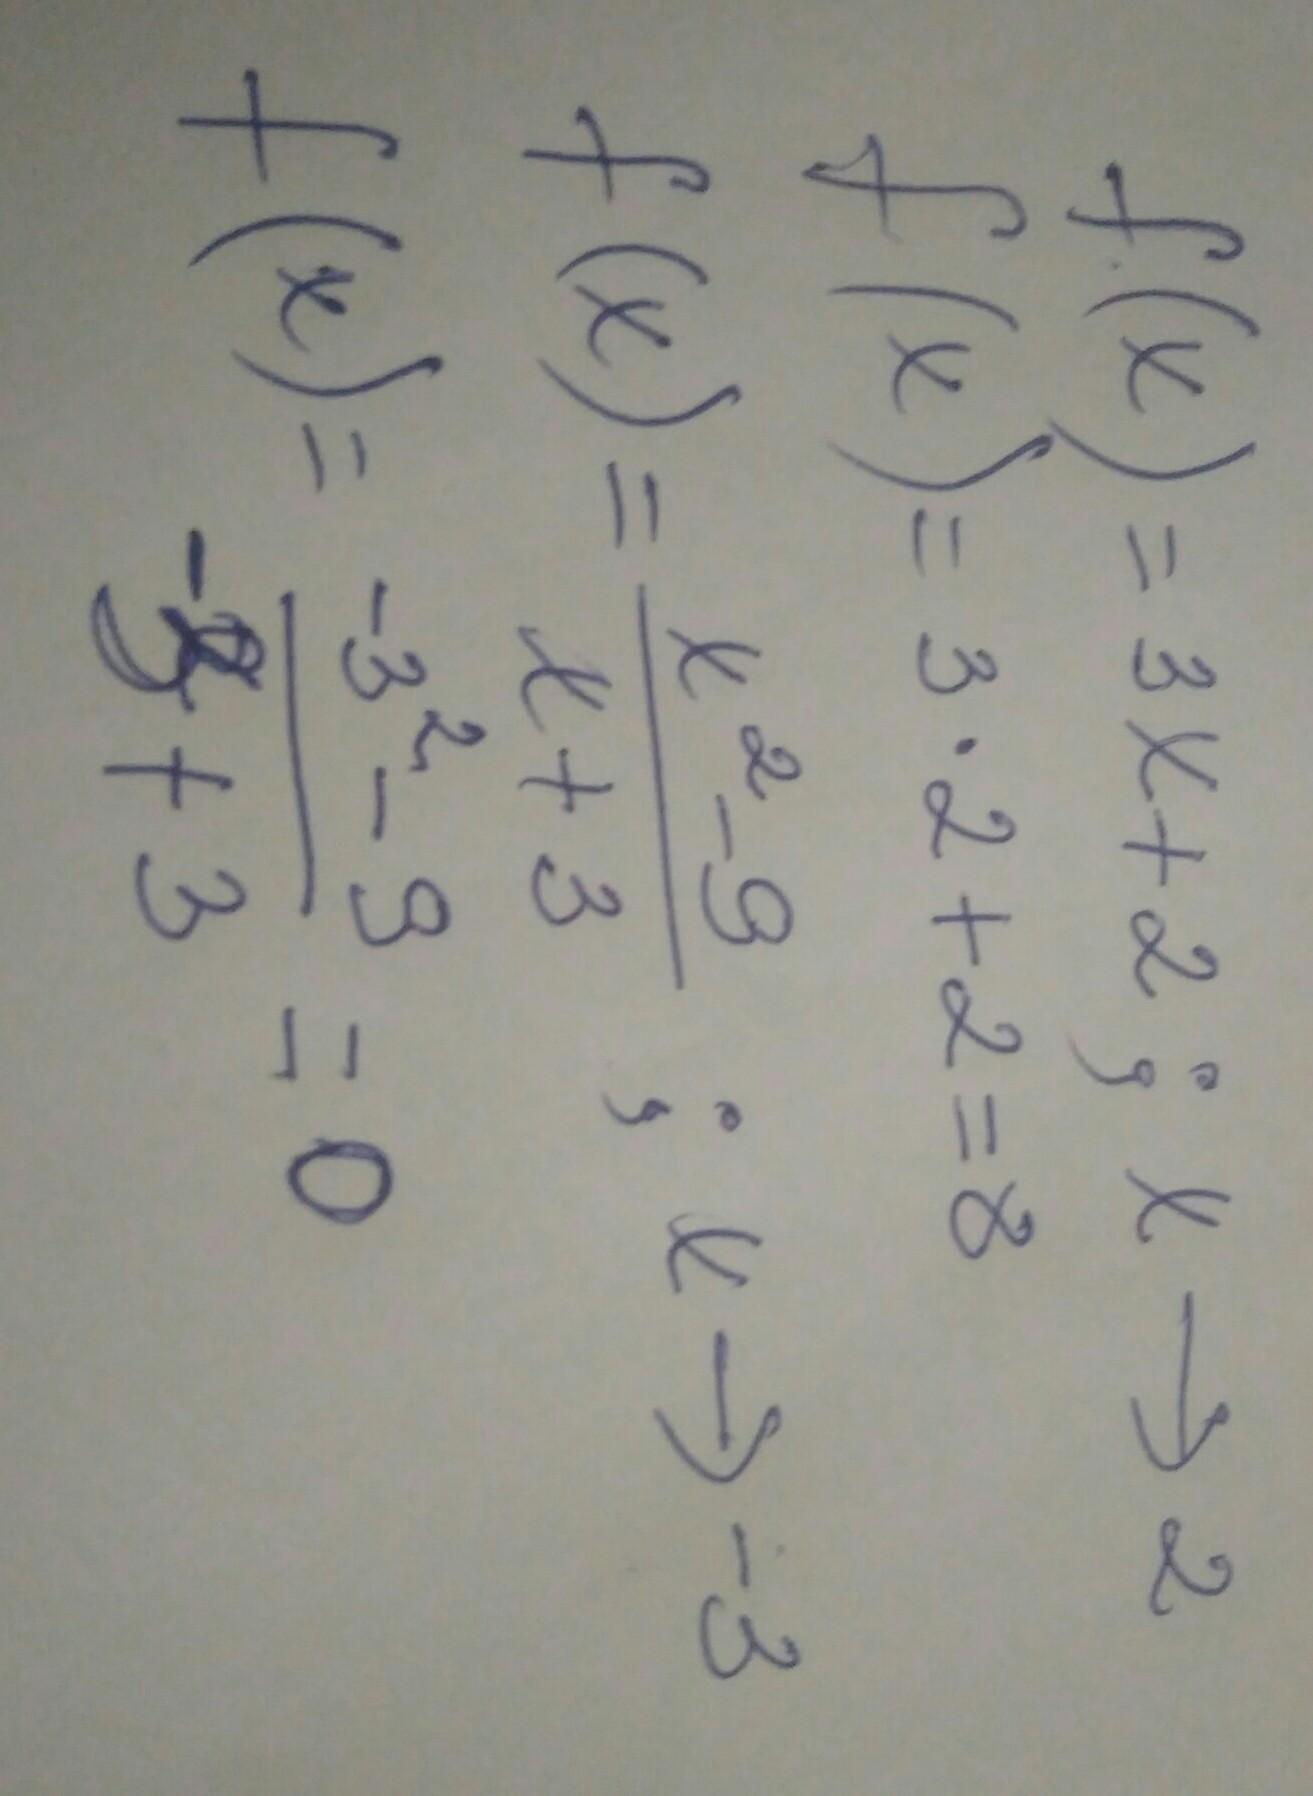 f(x) = 3x + 2 ; x → 2
f(x) = 3 · 2 + 2 = 8
f(x) = \frac{x^2 - 9}{x + 3} ; x → -3
f(x) = \frac{-3^2 - 9}{-3 + 3} = 0